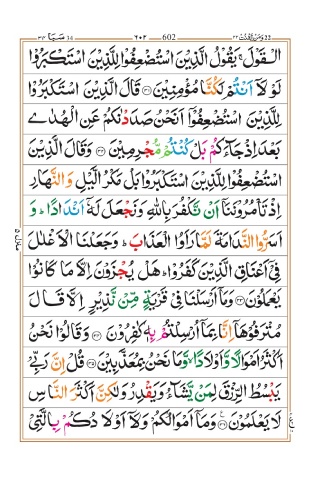 ٣٤ سبا ٦٠٢ 602 ومن يقنت ٢٢
الْقَوْلَ ۚ يَقُوْلُ الَّذِيْنَ اسْتُضْعِفُوْا لِلَّذِيْنَ اسْتَكْبَرُوْا
لَوْلَاۤ اَنْتُمْ لَكُنَّا مُؤْمِنِيْنَ ۝٣١ قَالَ الَّذِيْنَ اسْتَكْبَرُوْا
لِلَّذِيْنَ اسْتُضْعِفُوْۤا اَنَحْنُ صَدَدْنٰكُمْ عَنِ الْهُدٰى
بَعْدَ اِذْ جَآءَكُمْ بَلْ كُنْتُمْ مُّجْرِمِيْنَ ۝٣٢ وَقَالَ الَّذِيْنَ
اسْتُضْعِفُوْا لِلَّذِيْنَ اسْتَكْبَرُوْا بَلْ مَكْرُ الَّيْلِ وَالنَّهَارِ
اِذْ تَاْمُرُوْنَنَاۤ اَنْ نَّكْفُرَ بِاللّٰهِ وَنَجْعَلَ لَهٗۤ اَنْدَادًا ؕ وَ
اَسَرُّوا النَّدَامَةَ لَمَّا رَاَوُا الْعَذَابَ ؕ وَجَعَلْنَا الْاَغْلٰلَ
فِيْۤ اَعْنَاقِ الَّذِيْنَ كَفَرُوْا ؕ هَلْ يُجْزَوْنَ اِلَّا مَا كَانُوْا
يَعْمَلُوْنَ ۝٣٣ وَمَاۤ اَرْسَلْنَا فِيْ قَرْيَةٍ مِّنْ نَّذِيْرٍ اِلَّا قَالَ
مُتْرَفُوْهَاۤ اِنَّا بِمَاۤ اُرْسِلْتُمْ بِهٖ كٰفِرُوْنَ ۝٣٤ وَقَالُوْا نَحْنُ
اَكْثَرُ اَمْوَالًا وَّاَوْلَادًا ۙ وَّمَا نَحْنُ بِمُعَذَّبِيْنَ ۝٣٥ قُلْ اِنَّ رَبِّيْ
يَبْسُطُ الرِّزْقَ لِمَنْ يَّشَآءُ وَيَقْدِرُ وَلٰكِنَّ اَكْثَرَ النَّاسِ
لَا يَعْلَمُوْنَ ۝٣٦ وَمَاۤ اَمْوَالُكُمْ وَلَاۤ اَوْلَادُكُمْ بِالَّتِيْ